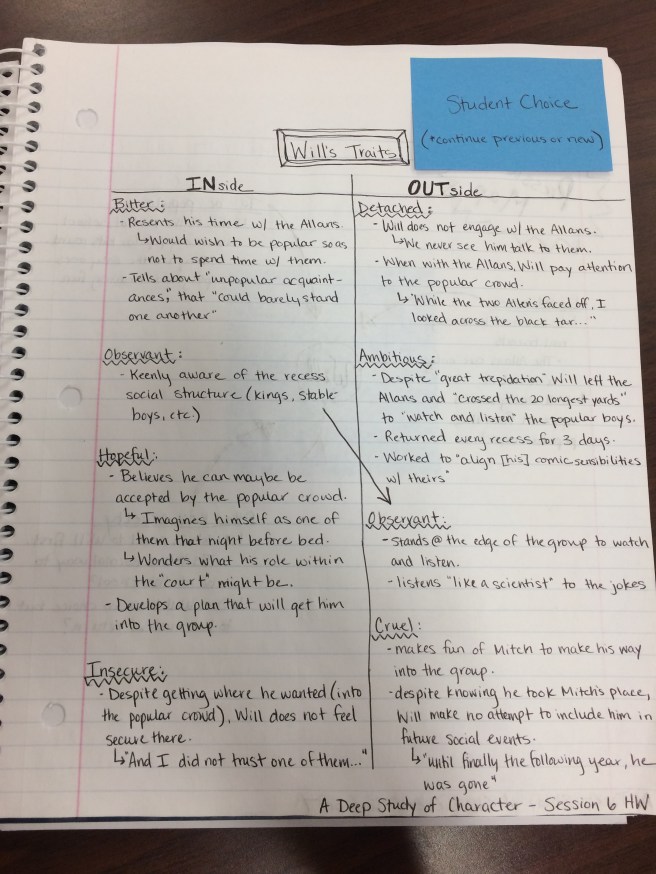 Student Choice
(*continue previous or new)
Will's Traits
INside
Bitter:
- Resents his time w/ the Allans.
↳Would wish to be popular so as
not to spend time w/ them.
- Tells about "unpopular acquaint-
ances," that "could barely stand
one another"
Observant:
- Keenly aware of the recess
social structure (kings, stable
boys, etc.)
Hopeful:
- Believes he can maybe be
accepted by the popular crowd.
↳ Imagines himself as one of
them that night before bed.
↳Wonders what his role within
the "court" might be.
- Develops a plan that will get him
into the group.
Insecure:
- Despite getting where he wanted (into
the popular crowd), Will does not feel
secure there.
↳"And I did not trust one of them..."
OUTside
Detached:
- Will does not engage w/ the Allans.
↳We never see him talk to them.
- When with the Allans, Will pay attention
to the popular crowd.
↳"While the two Allens faced off, I
looked across the black tar..."
Ambitious:
- Despite "great trepidation" Will left the
Allans and "crossed the 20 longest yards"
to "watch and listen" the popular boys.
- Returned every recess for 3 days.
- Worked to "align [his] comic sensibilities
w/ theirs"
Observant:
- Stands @ the edge of the group to watch
and listen.
- listens "like a scientist" to the jokes
Cruel:
- makes fun of Mitch to make his way
into the group.
- despite knowing he took Mitch's place,
Will make no attempt to include him in
future social events.
↳"until finally the following year, he
was gone"
A Deep Study of Character - Session 6 HW